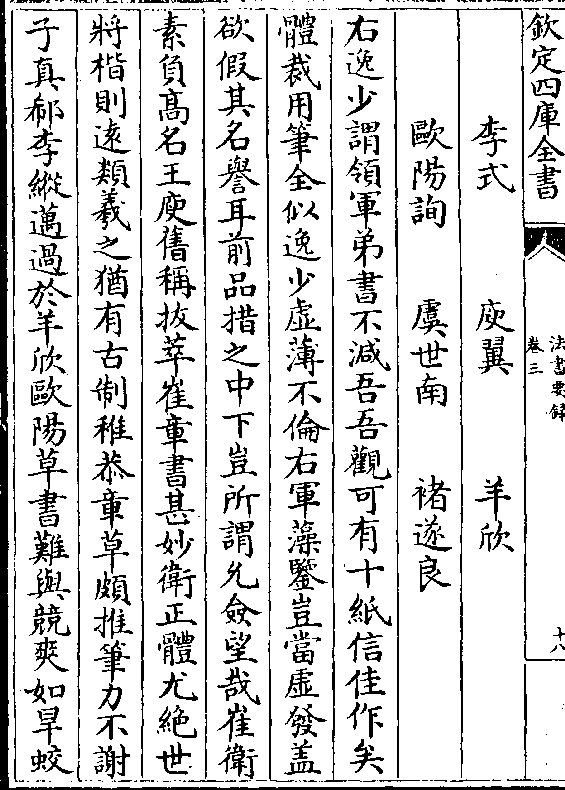 欽定四庫全書
法書要錄
卷三
十八
李式 庾翼 羊欣
歐陽詢 虞世南 褚遂良
右逸少謂領軍弟書不減吾吾觀可有十紙信佳作矣
體裁用筆全似逸少虛薄不倫右軍藻鑒豈當虛發盖
欲假其名譽耳前品措之中下豈所謂允僉望哉崔衛
素負髙名王庾舊稱拔萃崔章書甚妙衛正體尤絶世
將楷則逺類羲之猶有古制稚恭章草頗推筆力不謝
子真郗李縱邁過於羊欣歐陽草書難與競爽如旱蛟